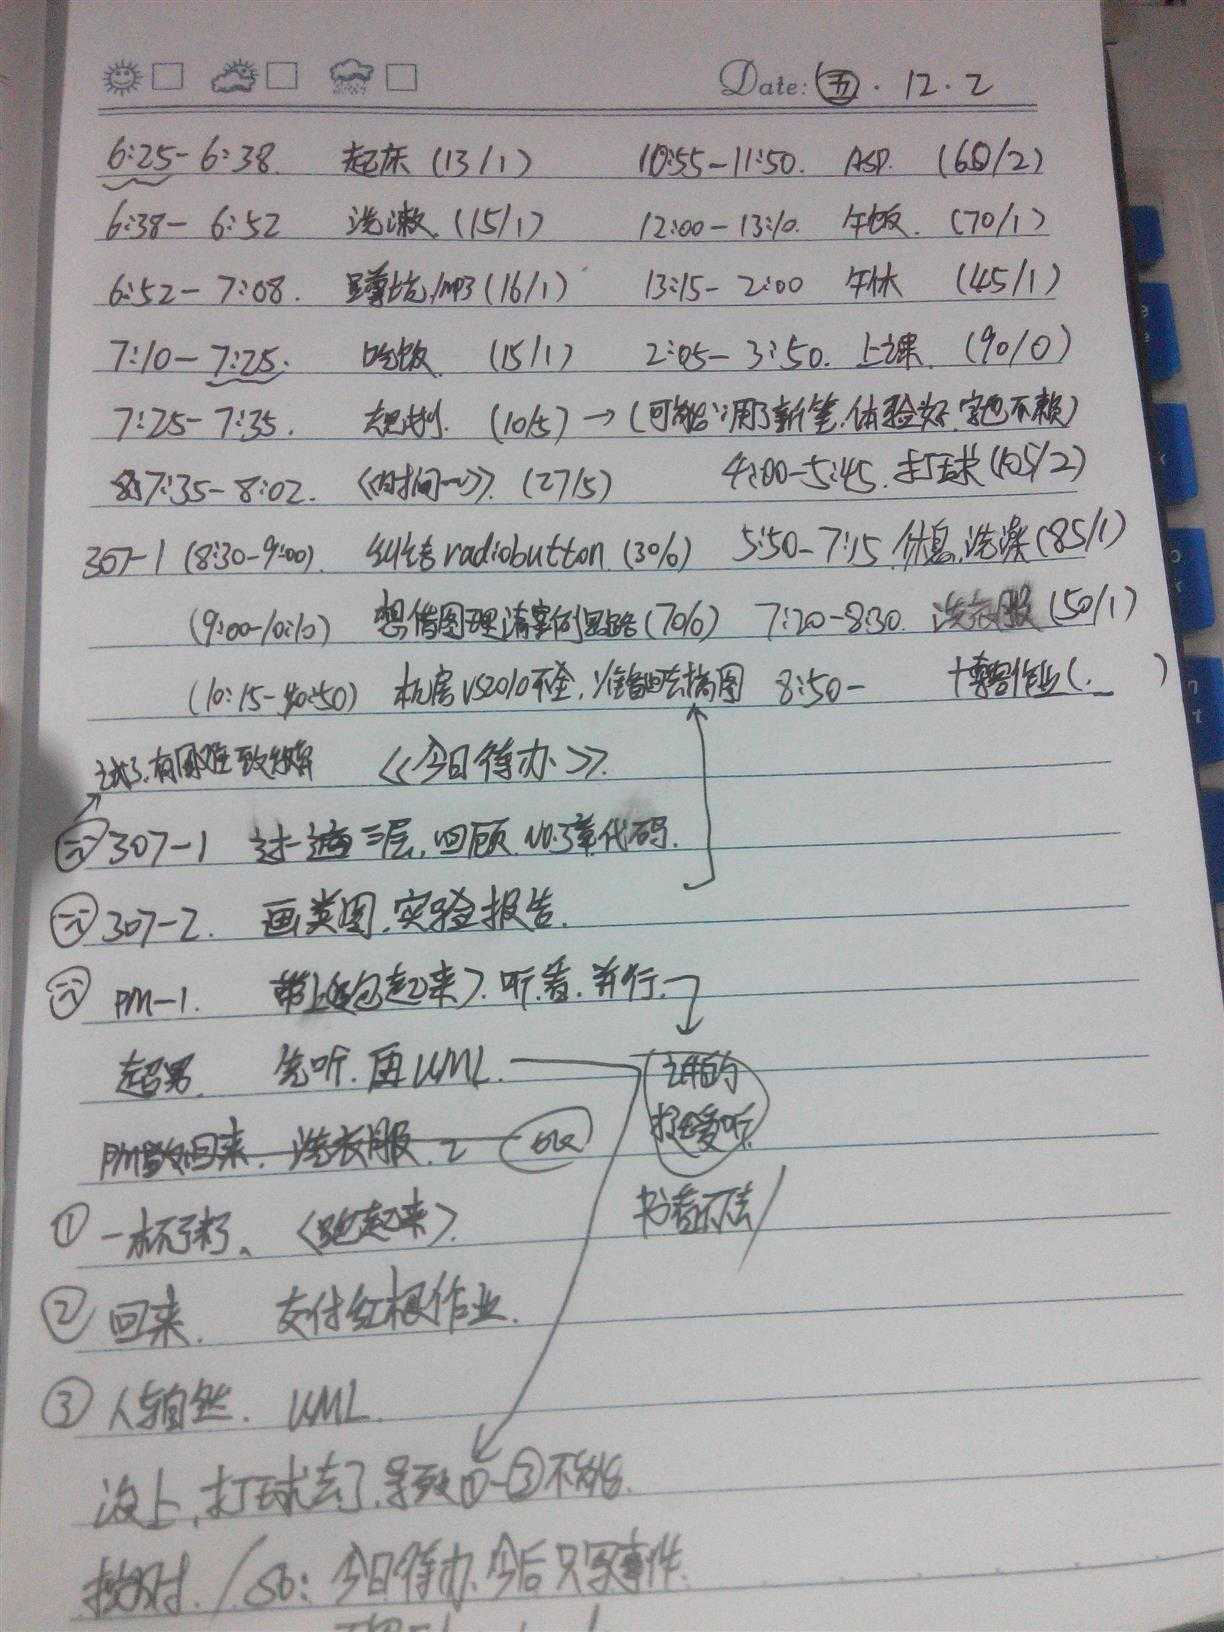 Date: 五 . 12 . 2
6:25-6:38. 起床 (13/1) 10:55-11:50. ASP. (60/2)
6:38-6:52 洗漱. (15/1) 12:00-13:10. 午饭. (70/1)
6:52-7:08. 蹲坑/MP3 (16/1) 13:15-2:00 午休 (45/1)
7:10-7:25. 吃饭 (15/1) 2:05-3:50. 上课. (90/0)
7:25-7:35. (10/5) → (可能:用了新笔.体验好.字也不赖)
7:35-8:02. 《时间—》. (27/5) 4:00-5:45. 打球 (105/2)
307-1 (8:30-9:00). 纠结radiobutton (30/6) 5:50-7:15. 休息.洗澡 (85/1)
(9:00-10:10) 想借图理请案例思路 (70/6) 7:20-8:30. 洗衣服 (50/1)
(10:15-10:50) 机房VS2010不全, 准备回去搞图 8:50- 博客作业 ( )
有困难 《今日待办》.
307-1 过一遍三层,回顾.NO.3章代码.
307-2. 画类图.实验报告.
PM-1. 带上起来〉.听.看.并行.
超男. 先听.再UML. 讲的
回来. 洗衣服. 2 我爱听
① 一杯 〈跑起来〉. 书看不去
② 回来. 交付红楼作业.
③ 人与自然. UML.
没上,打球去了.导致①-③不能.
今日待办.今后只写事件.